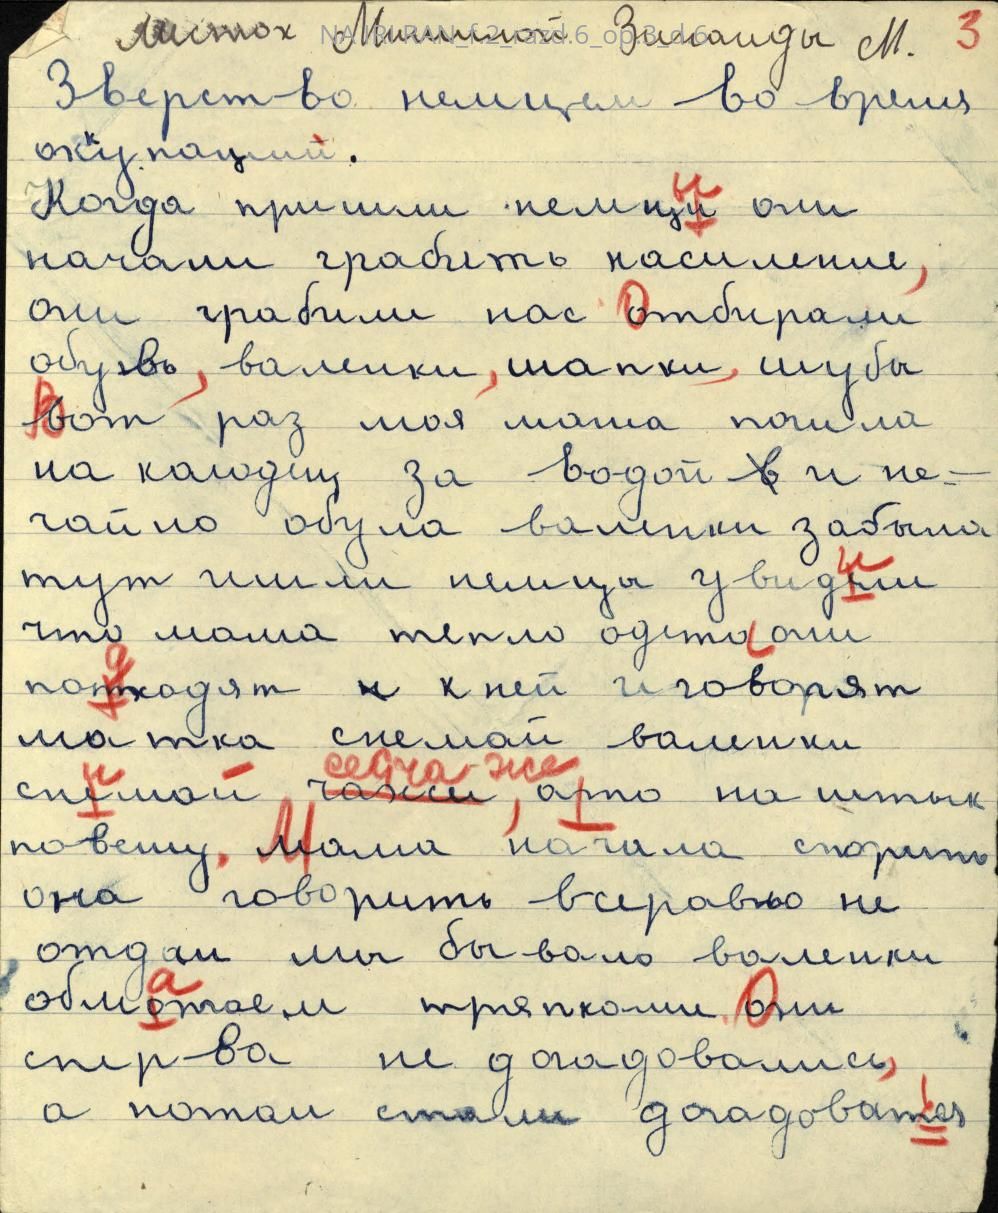 листок Мишиной Зинаиды М. 3
Зверство немцем во время
окупаций.
Когда пришли немци они
начали грабеть насиление,
они грабили нас Отбирали
обузвь, валенки, шапки, шубы
Вот раз моя мама пошла
на калодиц за водой и не-
чайно обула валенки забыла
тут ишли немцы увидели
что мама тепло одета они
потходят к ней и говорят
матка снемай валенки
снемай сейча же, ато на штык
повешу, Мама начила спорить
она говорить всеравно не
отдам мы бывало валенки
обмотаем тряпками Они
сперва не догадовались,
а потом стали догадоватся